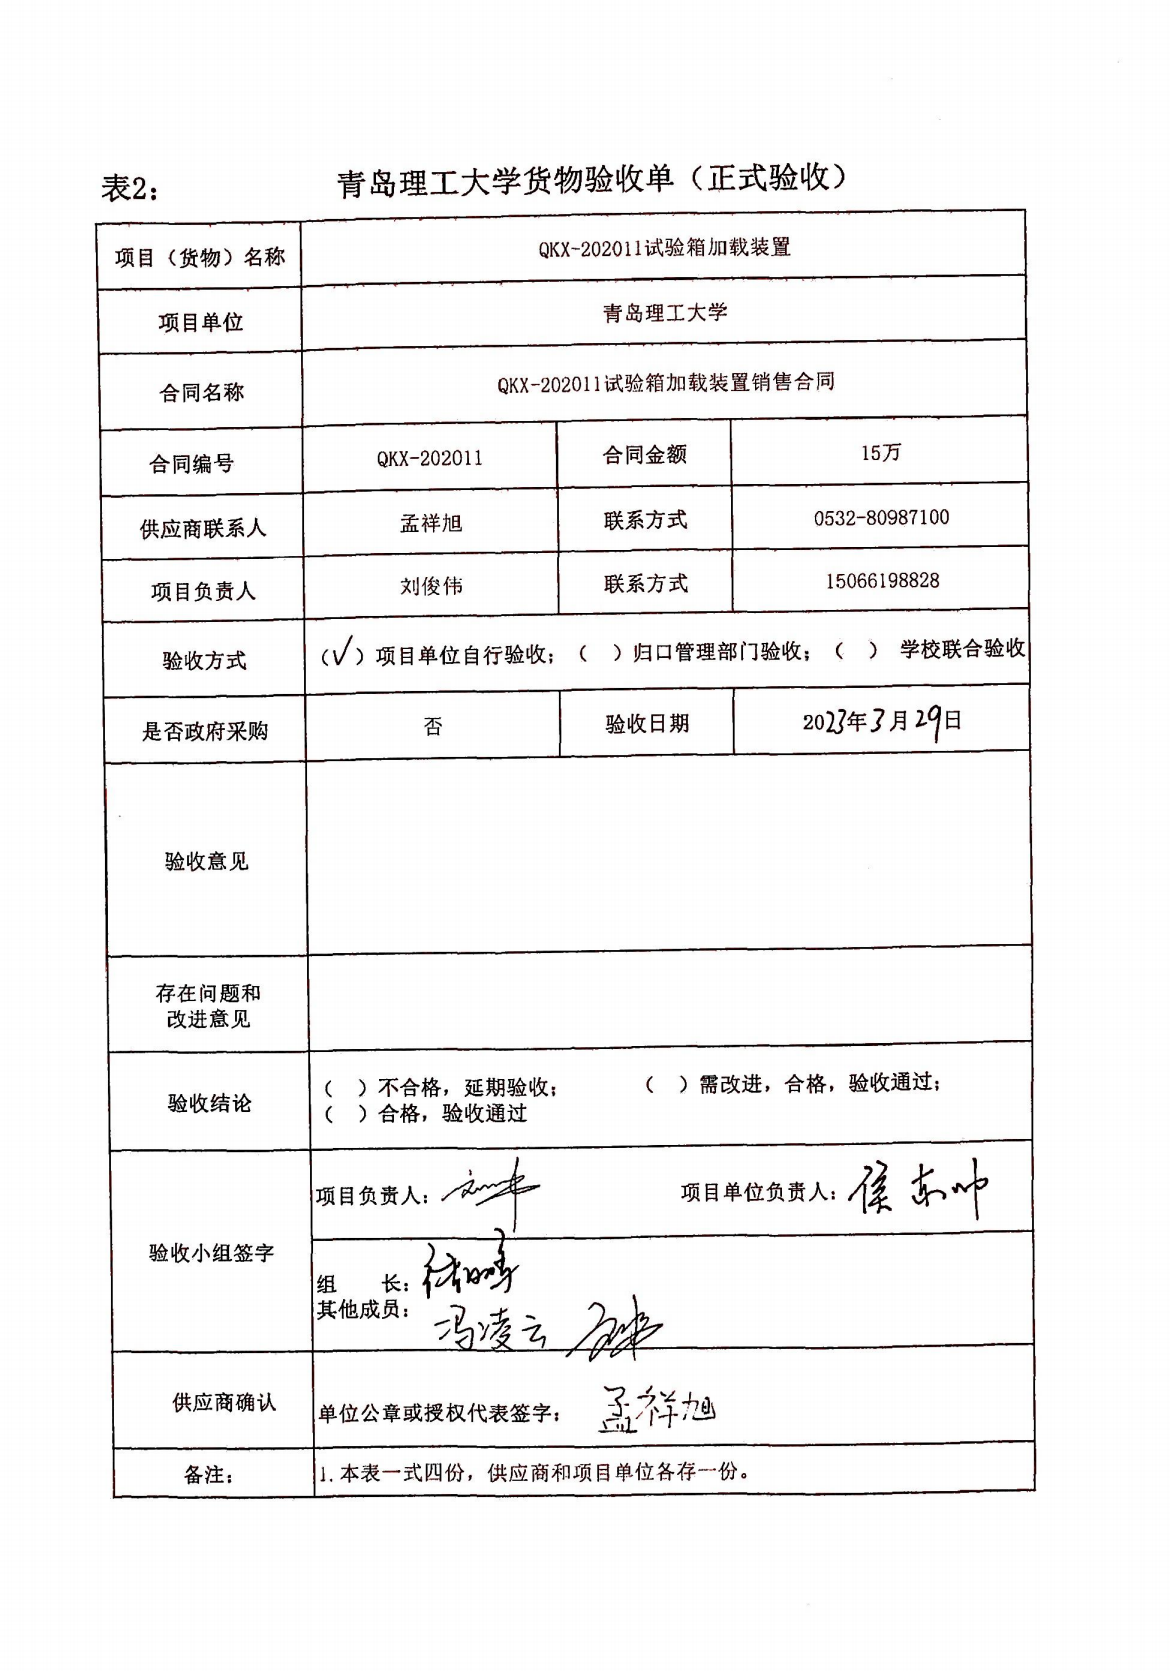 表2：
青岛理工大学货物验收单（正式验收）
项目（货物）名称 QKX-202011试验箱加载装置
项目单位 青岛理工大学
合同名称 QKX-202011试验箱加载装置销售合同
合同编号 QKX-202011 合同金额 15万
供应商联系人 孟祥旭 联系方式 0532-80987100
项目负责人 刘俊伟 联系方式 15066198828
验收方式 （√）项目单位自行验收；（ ）归口管理部门验收；（ ）学校联合验收
是否政府采购 否 验收日期 2023年3月29日
验收意见
存在问题和
改进意见
验收结论
（ ）不合格，延期验收； （ ）需改进，合格，验收通过；
（ ）合格，验收通过
验收小组签字
项目负责人： 项目单位负责人：侯东帅
组 长：
其他成员：冯凌云
供应商确认 单位公章或授权代表签字：孟祥旭
备注： 1.本表一式四份，供应商和项目单位各存一份。